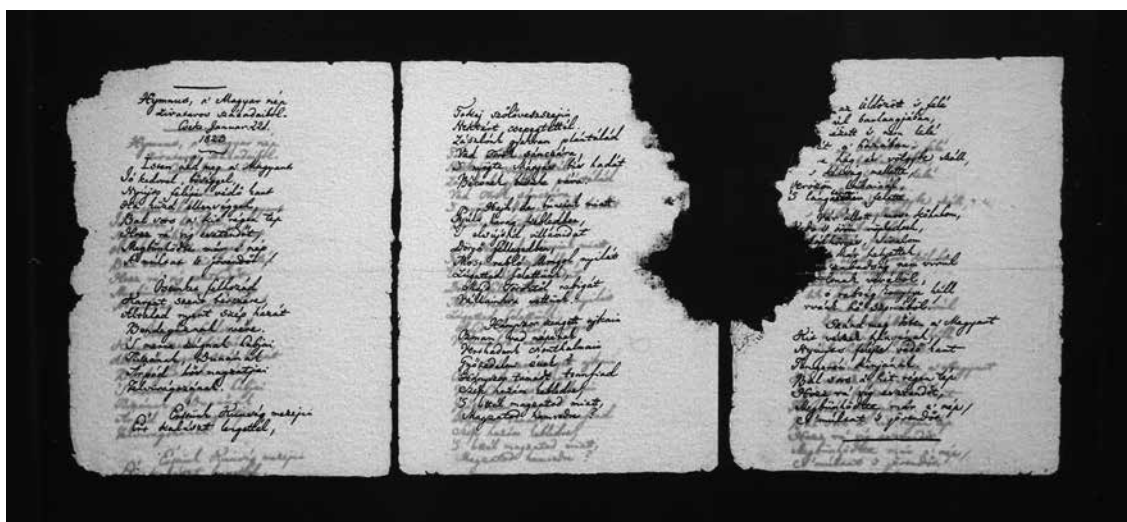 Hymnus, a' Magyar nép
zivataros századaiból.
Cseke, Januar. 22d.
1823.
Isten áldd meg a' Magyart
Jó kedvvel, bőséggel,
Nyújts feléje védő kart
Ha küzd ellenséggel;
Bal sors a' kit régen tép
Hozz rá víg esztendőt,
Megbünhödte már e' nép
A' multat 's jövendőt!
Őseinket felhozád
Kárpát szent bérczére,
Általad nyert szép hazát
Bendegúznak vére.
'S merre zúgnak habjai
Tiszának, Dunának
Árpád hős magzatjai
Felvirágozának.
Értünk Kunság mezejin
Ért kalászt lengettél,
Tokaj szőlővesszein
Nektárt csepegtettél.
Zászlónk gyakran plántálád
Vad török sánczára
'S nyögte Mátyás bús hadát
Bécsnek büszke vára.
Hajh, de bűneink miatt
Gyúlt harag kebledben,
'S elsújtád villámidat
Dörgő fellegedben,
Most rabló Mongol nyilát
Zúgattad felettünk,
Majd töröktől rabigát
Vállainkra vettünk.
Hányszor zengett ajkain
Ozman vad népének
Vert hadunk csonthalmain
Győzedelmi ének!
Hányszor támadt tenfiad
Szép hazám kebledre,
'S lettél magzatod miatt
Magzatod hamvvedre?
az üldözött 's felé
barlangjában,
és nem lelé
a' hazában.
hág és völgybe száll,
's kétség mellette,
Vérözön lábainál,
'S lángtenger felette.
Vár állott, most kőhalom,
Kedv 's öröm röpkedtek,
Halálhörgés, siralom
helyettek.
szabadság nem virúl
véréből,
rabság könnye hull
hő szeméből!
Szánd meg Isten a' Magyart
Kit vészek hányának,
Nyújts feléje védő kart
Tengerén kínjának.
Bal sors a' kit régen tép
Hozz rá víg esztendőt,
Megbünhödte már e' nép
A' multat 's jövendőt!